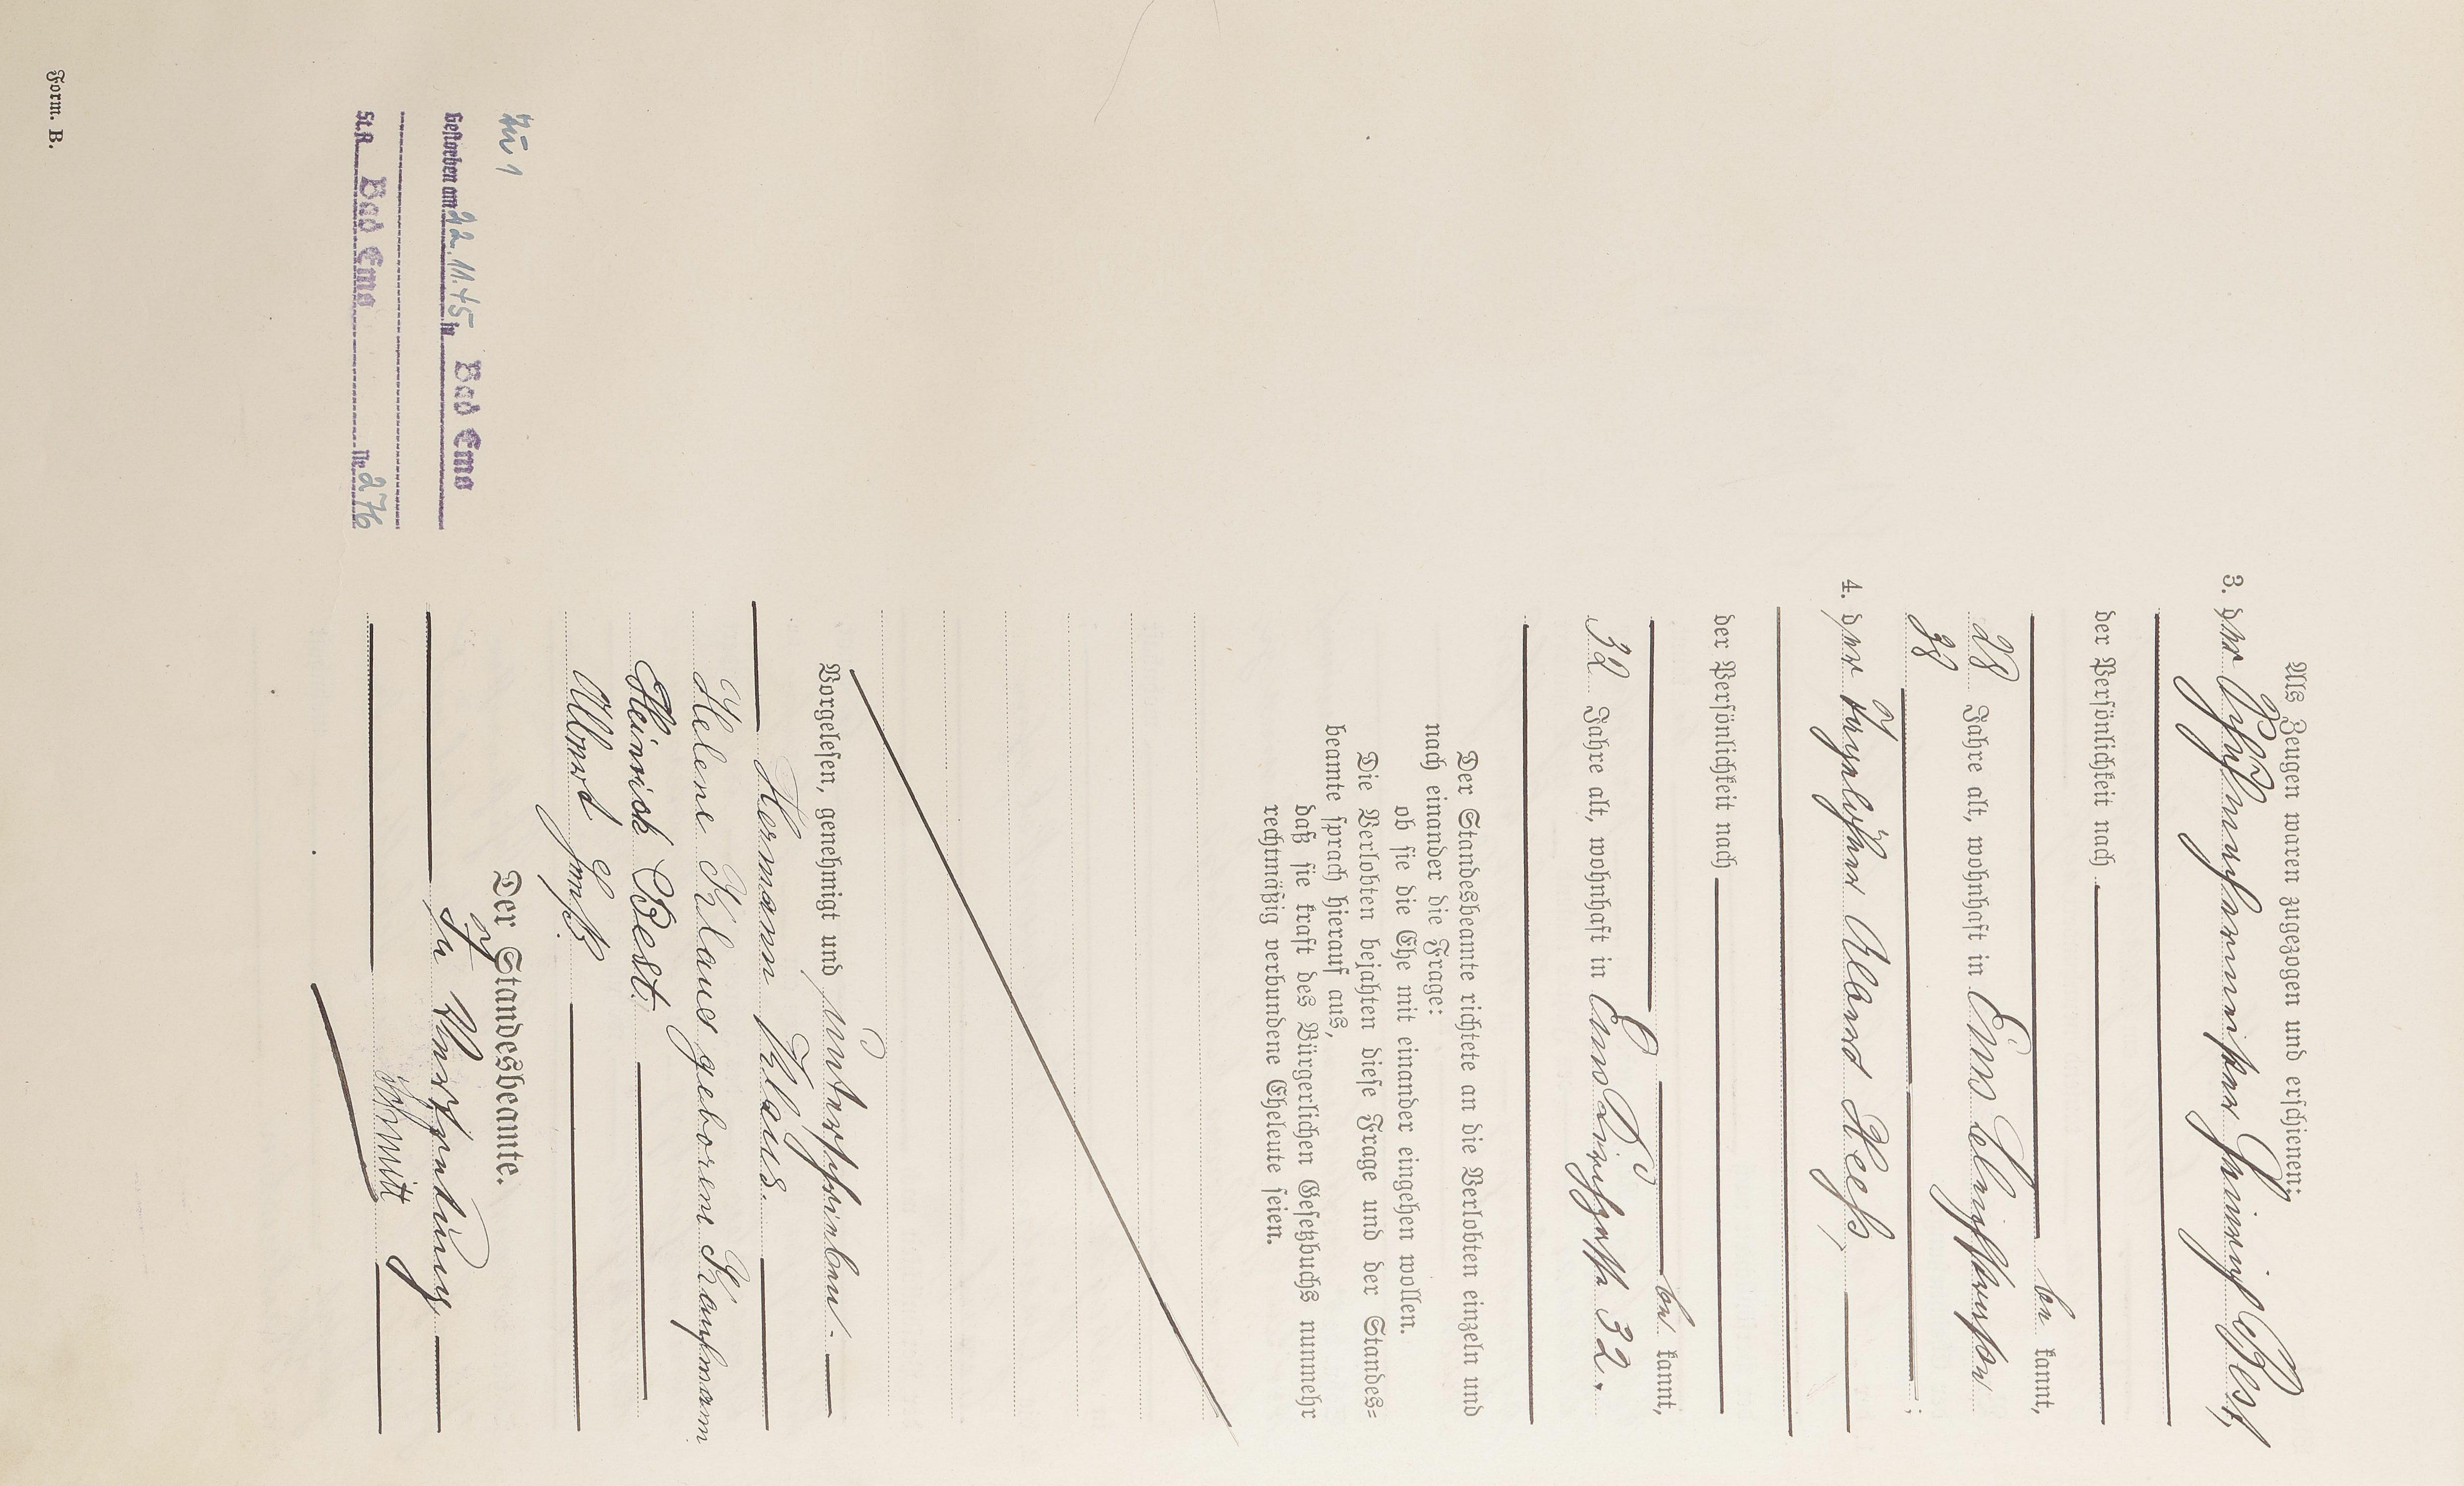 Als Zeugen waren zugezogen und erschienen:
3. der Schuhmachermeister Heinrich Best,
der Persönlichkeit nach
be kannt,
28 Jahre alt, wohnhaft in Ems
38 ;
4. der Tagelöhner Albert Heß,
der Persönlichkeit nach
be kannt,
32 Jahre alt, wohnhaft in Ems 32.
Der Standesbeamte richtete an die Verlobten einzeln und
nach einander die Frage:
ob sie die Ehe mit einander eingehen wollen.
Die Verlobten bejahten diese Frage und der Standes=
beamte sprach hierauf aus,
daß sie kraft des Bürgerlichen Gesetzbuchs nunmehr
rechtmäßig verbundene Eheleute seien.
Vorgelesen, genehmigt und unterschrieben.
Hermann Klaus.
Helene Klaus geborene Kaufmann
Heinrich Best.
Albert Heß.
Der Standesbeamte.
In Vertretung
zu 1
Gestorben am 22.11.45 in Bad Ems
St.A Bad Ems Nr. 276
Form. B.